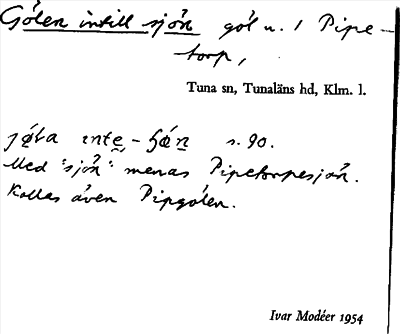 Gölen intill sjön göl u. / Pipe-
torp,
Tuna sn, Tunaläns hd, Klm. l.
s. 90.
Med "sjön" menas Pipetorpesjön.
Kallas även Pipgölen.
Ivar Modéer 1954